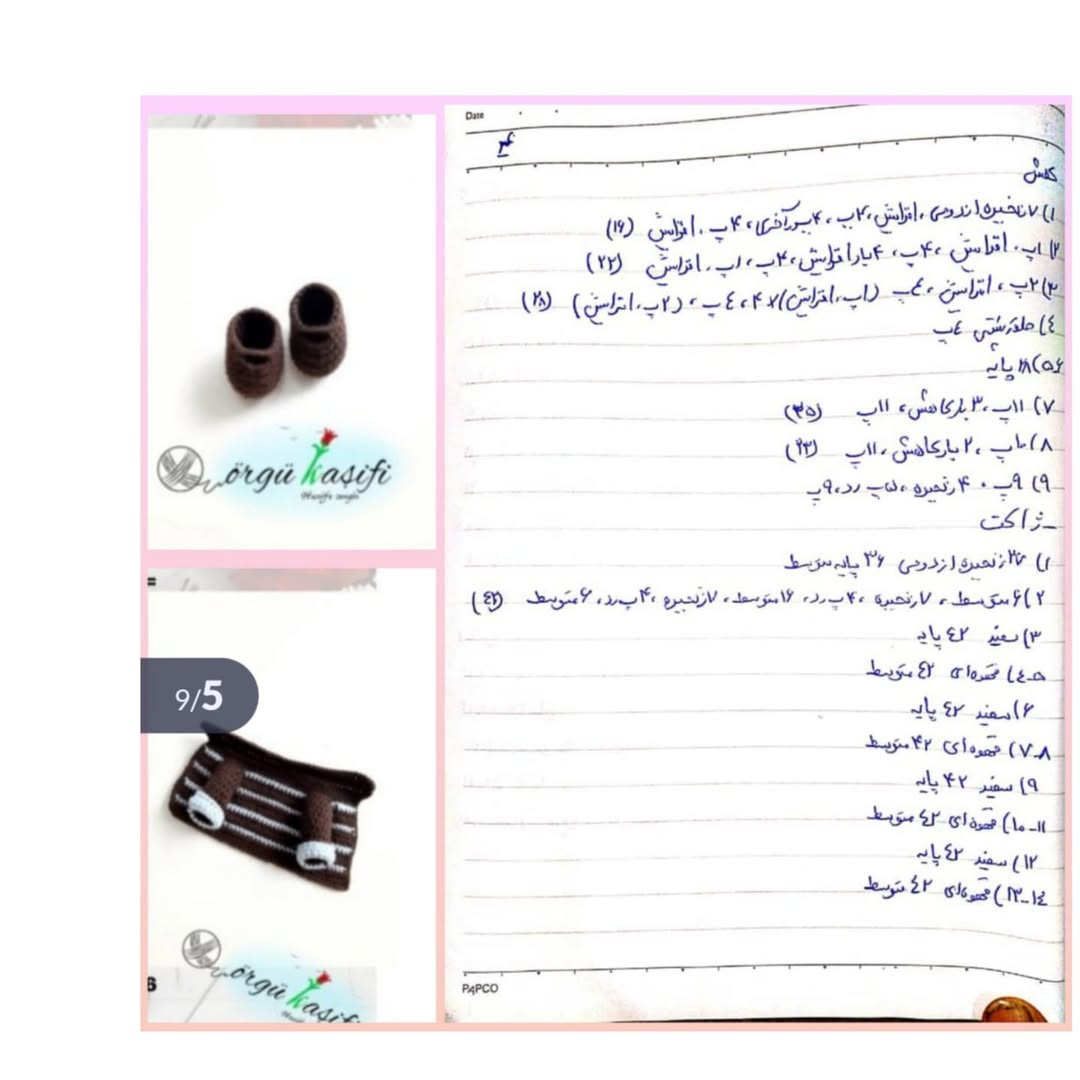 Date
۳۴
کفش
۱) ۷ زنجیره از دومی، افزایش، ۴پ، ۴پ در آخری، ۴پ، افزایش (۱۶)
۲) ۱پ، افزایش، ۴پ، ۴بار افزایش، ۴پ، ۱پ، افزایش (۲۲)
۳) ۲پ، افزایش، ۴پ (۱پ، افزایش)×۴، ٤پ، (۲پ، افزایش) (۲۸)
٤) حلقه پشتی ۲۸پ
۵و۶) ۲۸ پایه
۷) ۱۱پ، ۳ بار کاهش، ۱۱پ (۲۵)
۸) ۱۰پ، ۲ بار کاهش، ۱۱پ (۲۳)
۹) ۹پ، ۴ زنجیره، ۵پ رد، ۹پ
ژاکت
۱) ۳۷ زنجیره از دومی ۳۶ پایه متوسط
۲) ۶ متوسط، ۷ زنجیره، ۴پ رد، ۱۶ متوسط، ۷ زنجیره، ۴پ رد، ۶ متوسط (٤۲)
۳) سفید ٤۲ پایه
٤-۵) قهوه‌ای ٤۲ متوسط
۶) سفید ٤۲ پایه
۷-۸) قهوه‌ای ۴۲ متوسط
۹) سفید ۴۲ پایه
۱۰-۱۱) قهوه‌ای ٤۲ متوسط
۱۲) سفید ٤۲ پایه
۱۳-۱٤) قهوه‌ای ٤۲ متوسط
PAPCO
örgü kaşifi
Hanife zengin
9/5
örgü kaşifi
6